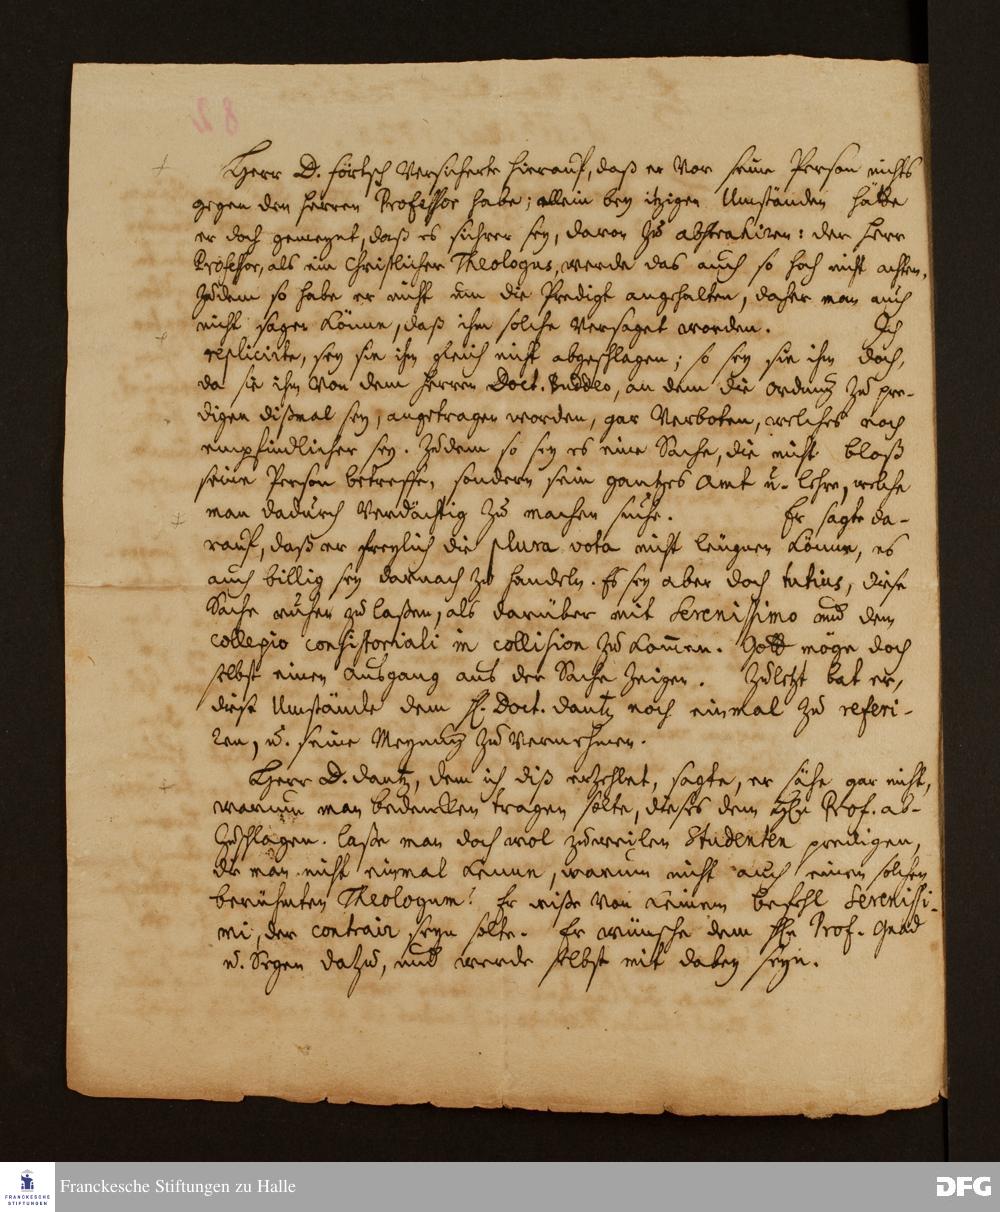 Herr D. Förtsch versicherte hierauf, daß er vor seine Person nichts
gegen den Herren Professor habe; allein bey itzigen Umständen hätte
er doch gemeynet, daß es sichrer sey, davon zu abstrahiren: der Herr
Professor, als ein Christlicher Theologus, werde das auch so hoch nicht achten,
Zudem so habe er nicht um die Predigt angehalten, daher man auch
nicht sagen könne, daß ihm solche versaget worden. Ich
replicirte, sey sie ihm gleich nicht abgeschlagen; so sey sie ihm doch,
da sie ihm von dem Herren Doct. Buddeo, an dem die Ordnung zu pre-
digen dißmal sey, angetragen worden, gar verboten, welches noch
empfindlicher sey. Zudem so sey es eine Sache, die nicht bloß
seine Person betreffe, sondern sein gantzes Amt u. Lehre, welche
man dadurch verdächtig zu machen suche. Er sagte da-
rauf, daß er freylich die plura vota nicht leugnen könne, es
auch billig sey darnach zu handeln. Es sey aber doch tutius, diese
Sache ruhen zu laßen, als darüber mit Serenissimo und dem
collegio consistoriali in collision zu kommen. Gott möge doch
selbst einen Ausgang aus der Sache zeigen. Zuletzt bat er,
diese Umstände dem H. Doct. Dantz noch einmal zu referi-
ren, u. seine Meynung zu vernehmen.
Herr D. Dantz, dem ich diß erzehlet, sagte, er sähe gar nicht,
warum man bedencken tragen solte, dieses dem Hn Prof. ab-
zuschlagen. Laße man doch wol zuweilen Studenten predigen,
die man nicht einmal kenne, warum nicht auch einen solchen
berühmten Theologum? Er wiße von keinem Befehl Serenissi-
mi, der contrair seyn solte. Er wünsche dem Hn Prof. Gnad
u. Segen dazu, und werde selbst mit dabey seyn.
82
Franckesche Stiftungen zu Halle
FRANCKESCHE
STIFTUNGEN
DFG